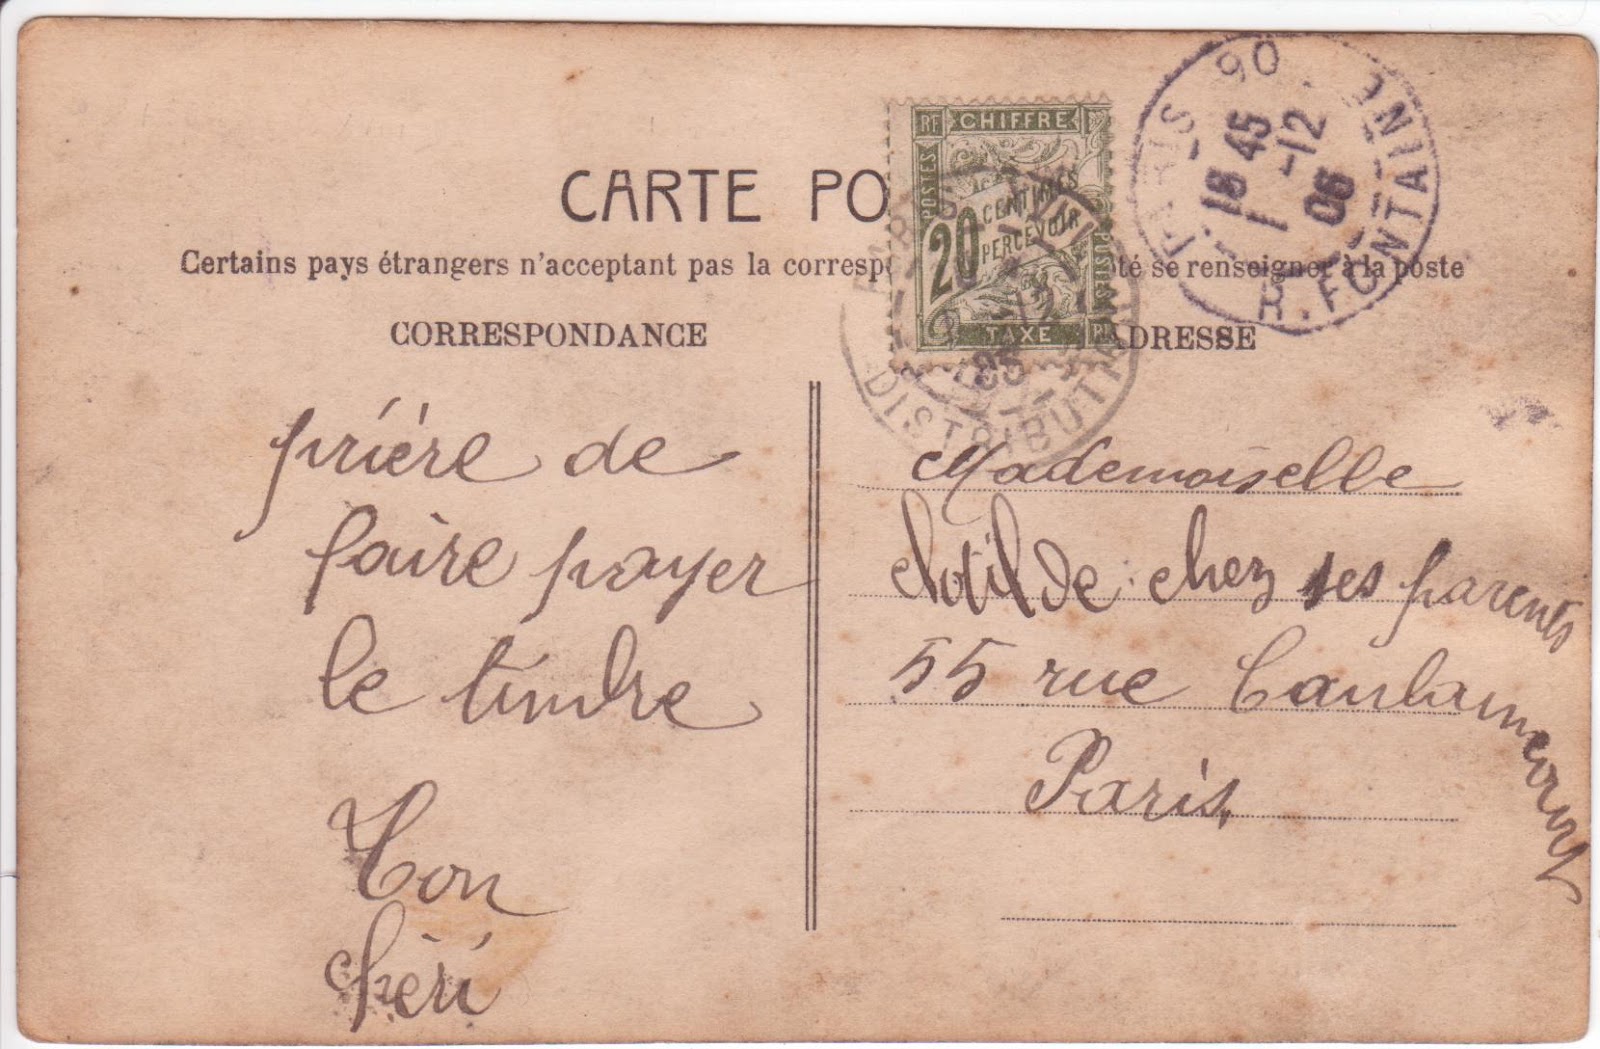 CARTE PO
Certains pays étrangers n'acceptant pas la corresp té se renseigner à la poste
CORRESPONDANCE
ADRESSE
RF CHIFFRE
POSTES
20 CENTIMES
PERCEVOIR
POSTES
TAXE RF
PARIS 90
R. FONTAINE
18 45
1 -12
06
DISTRIBUTION
prière de
faire payer
le timbre
Ton
chéri
Mademoiselle
Clotilde chez ses parents
55 rue Caulaincourt
Paris